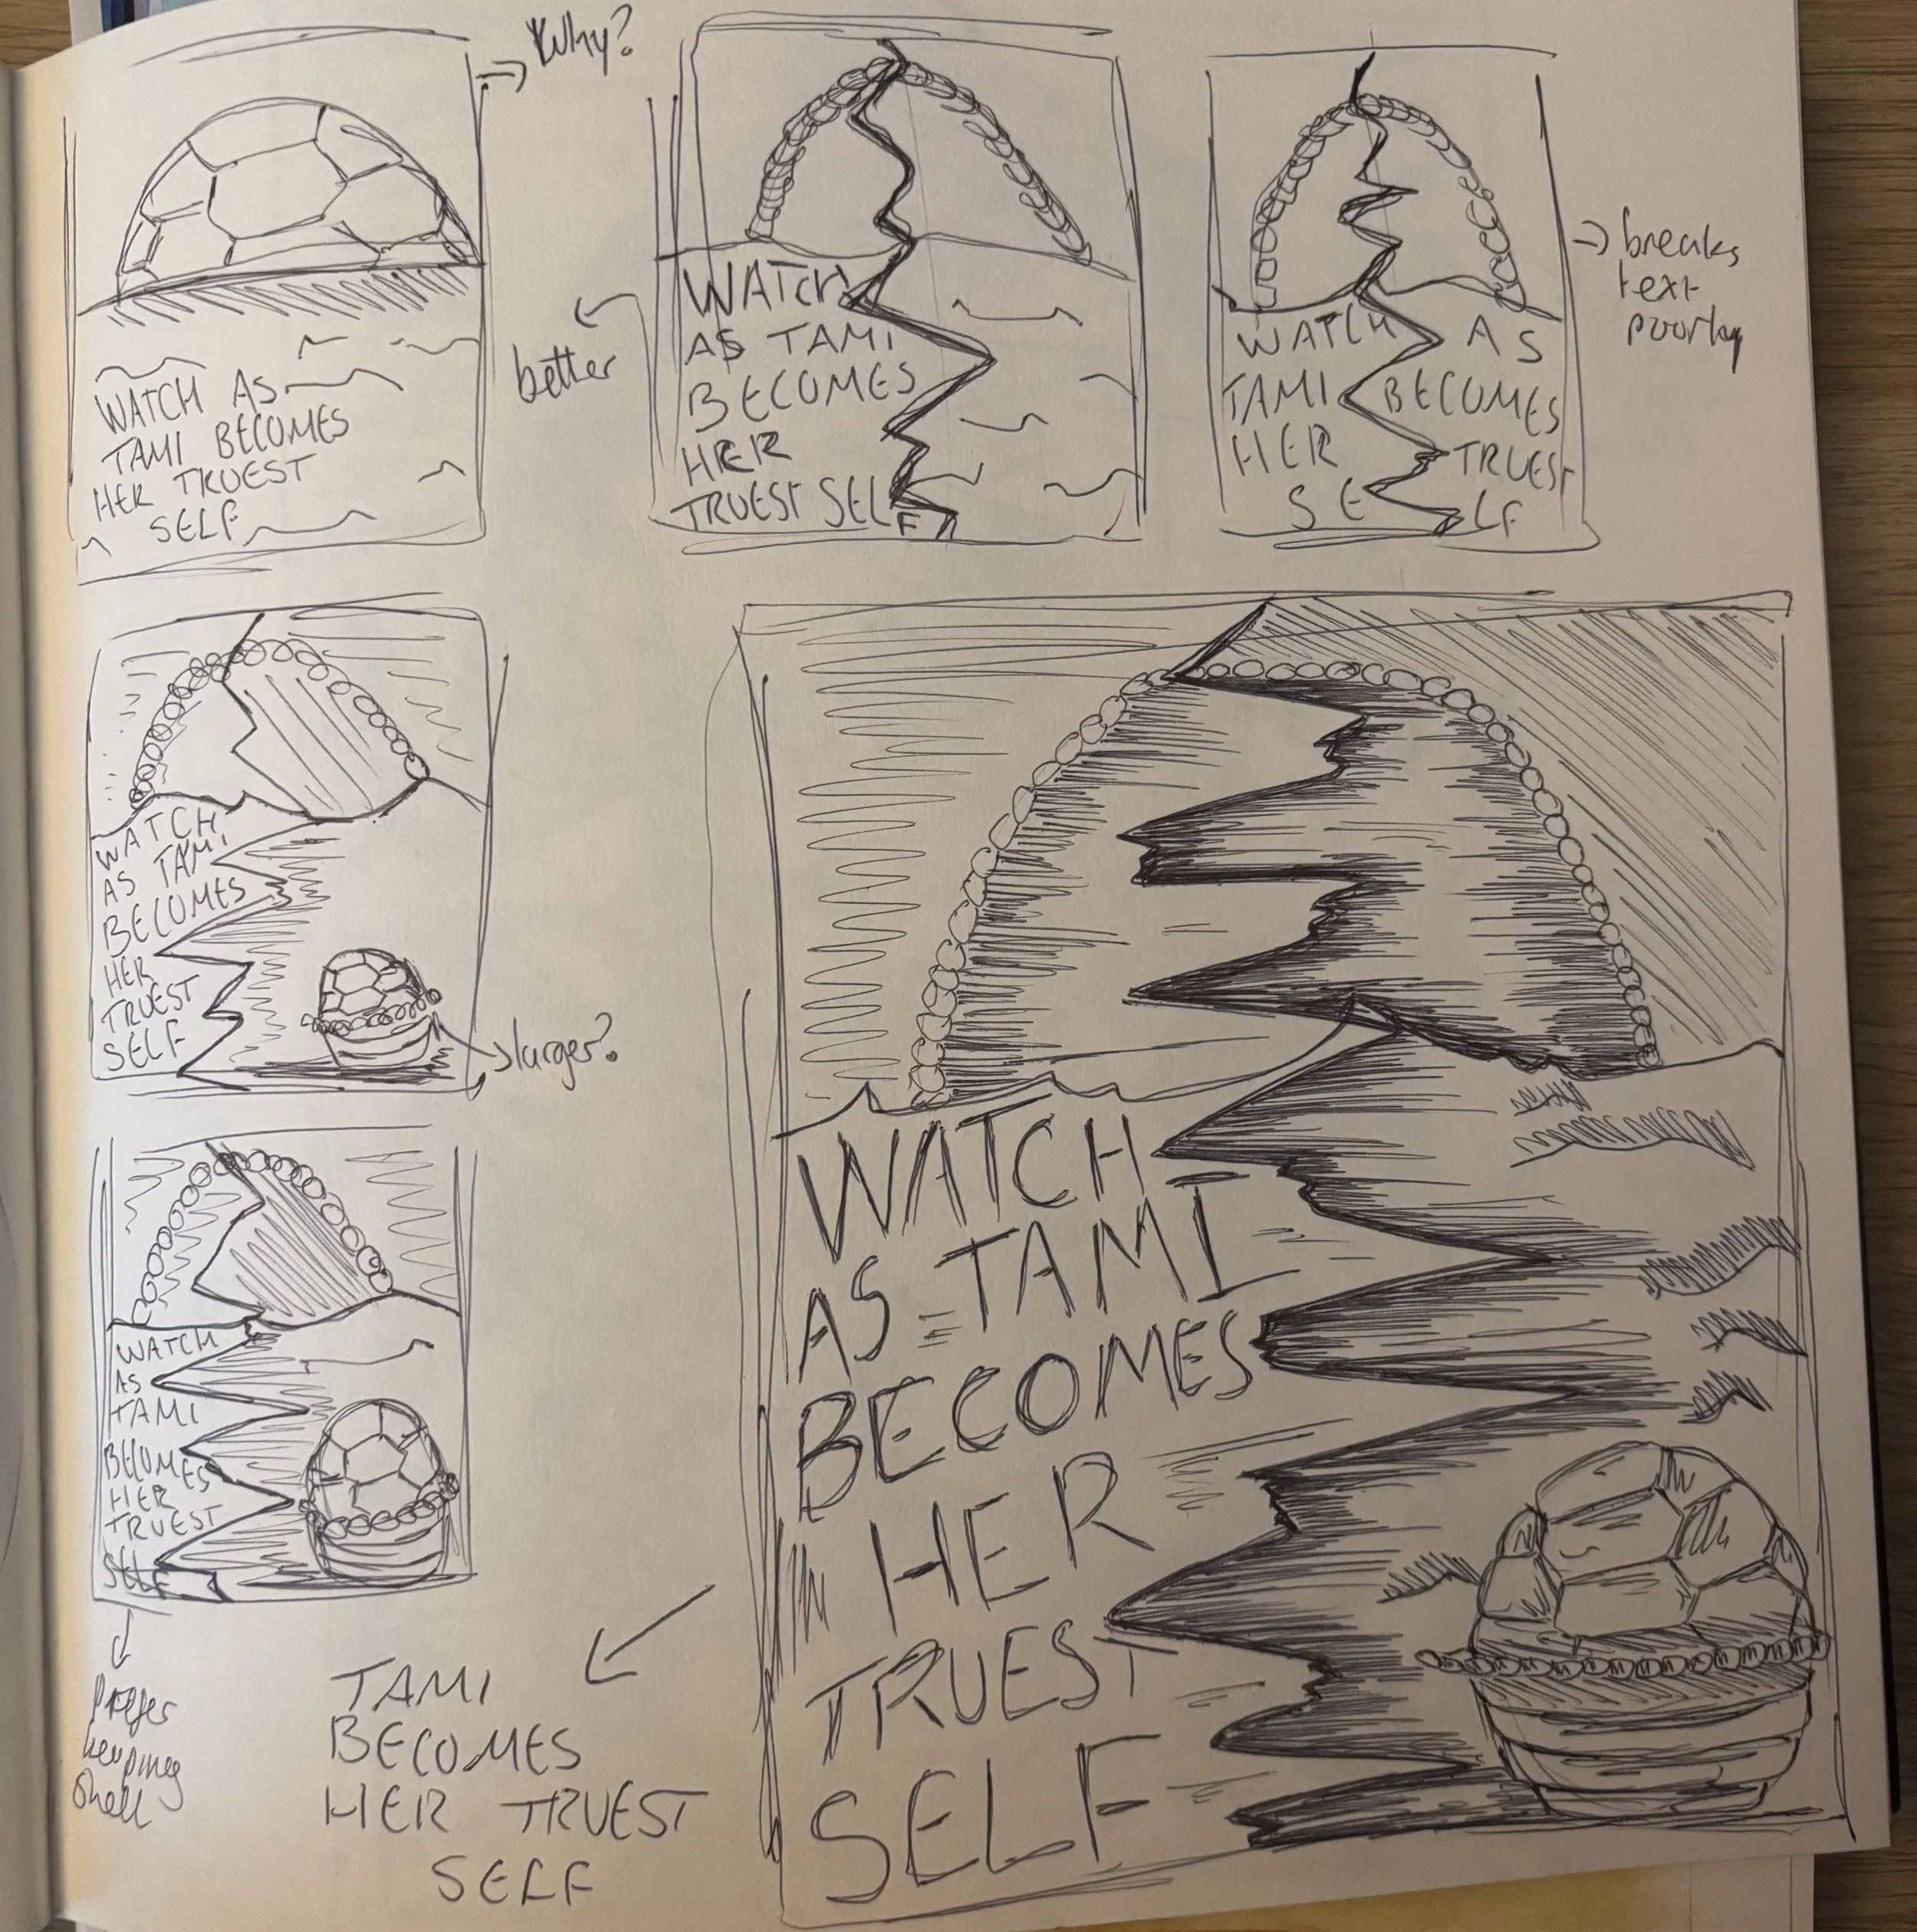 Why?
WATCH AS
TAMI BECOMES
HER TRUEST
SELF
better
WATCH
AS TAMI
BECOMES
HER
TRUEST SELF
WATCH AS
TAMI BECOMES
HER TRUEST
SELF
breaks
text
poorly
WATCH
AS TAMI
BECOMES
HER
TRUEST
SELF
larger?
WATCH
AS
TAMI
BECOMES
HER
TRUEST
SELF
Prefer
keeping
shell
TAMI
BECOMES
HER TRUEST
SELF
WATCH
AS TAMI
BECOMES
HER
TRUEST
SELF